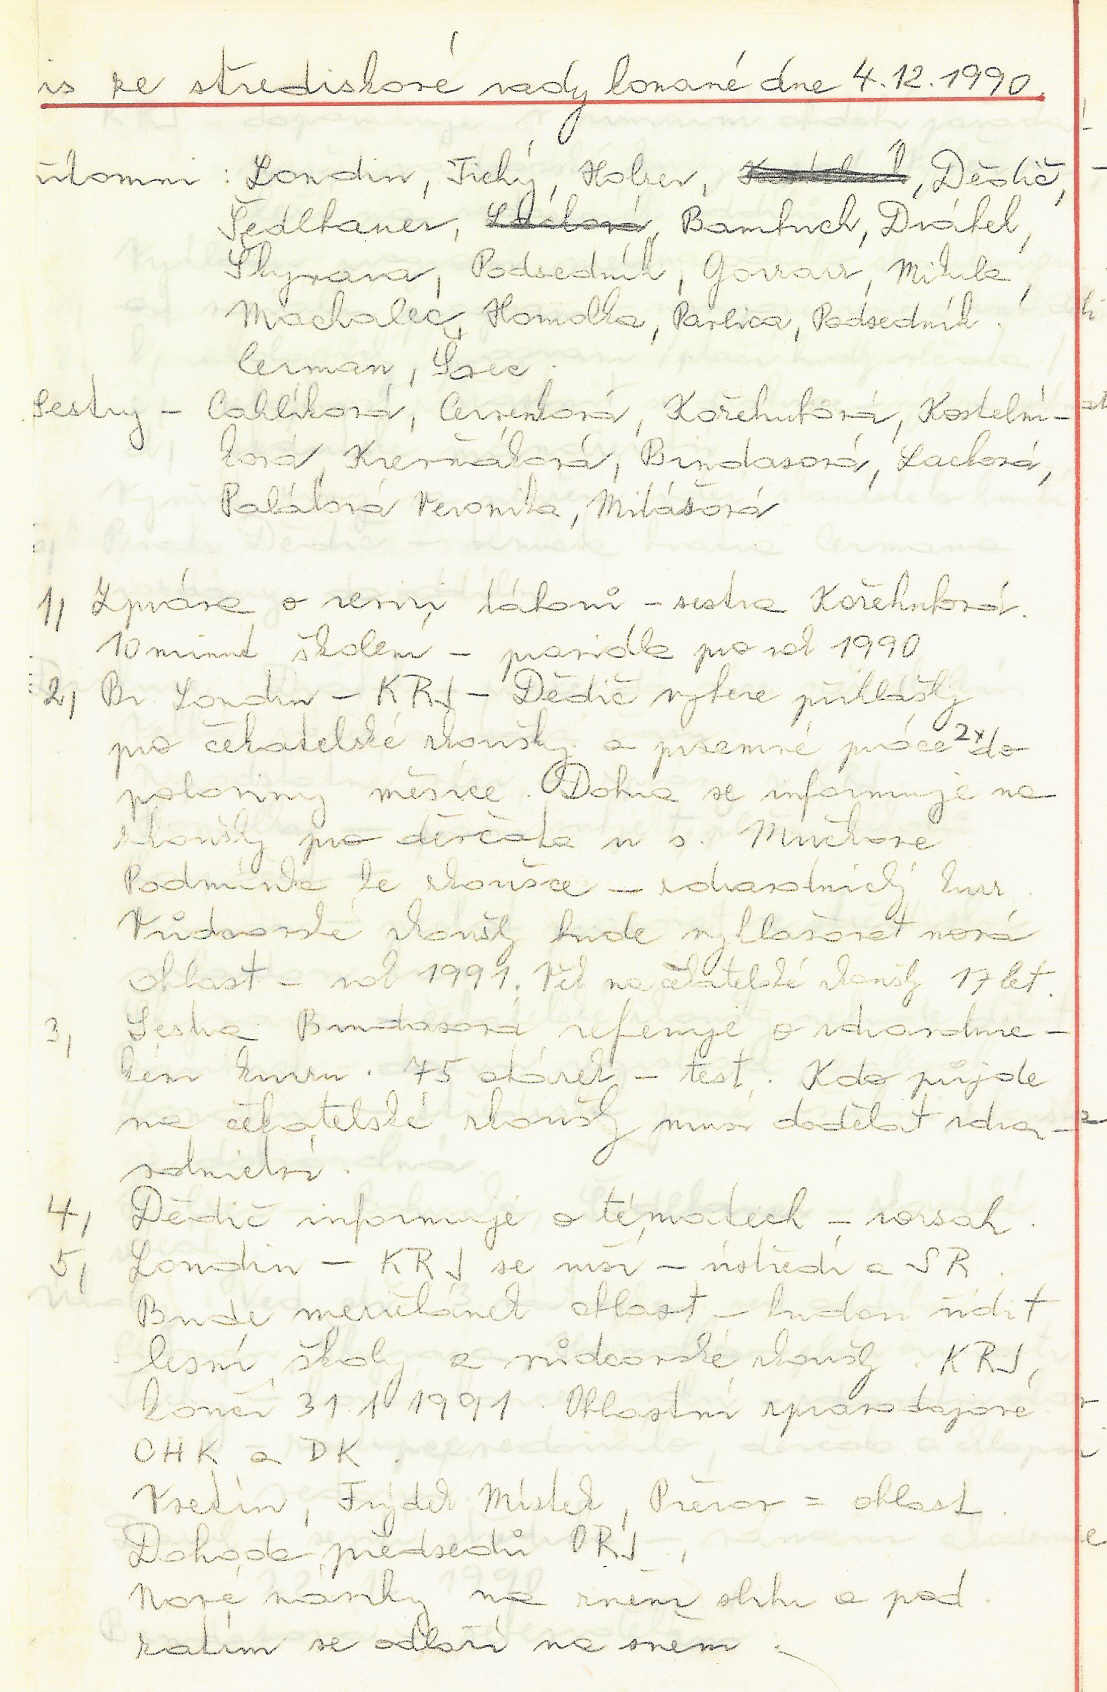 is ze střediskové rady konané dne 4.12.1990.
ítomni : Londin, Tichý, Holzer, Dědič,
Šedlbauer, Bambuch, Drábek,
Skyvara, Podsedník, Govvarr, Mikula,
Machaleč, Homolka, Pavlica, Podsedník.
Cerman, Švec.
Sestry – Cahlíková, Červenková, Kořehubová, Kostelní-
ková, Kresňáková, Bindasová, Lacková,
Palátová Veronika, Mitášová
1, Zpráva o revizi táborů – sestra Kořehubová.
10 minut školení – pravidla pro rok 1990
2, Br. Londin – KRJ – Dědič vybere přihlášky
pro čekatelské zkoušky a písemné práce 2x do
poloviny měsíce. Dohra se informuje na
zkoušky pro děvčata u s. Mučkové
Podmínka ke zkoušce – zdravotnický kurz.
Vůdcovské zkoušky bude vyhlašovat nová
oblast – rok 1991. Věk na čekatelské zkoušky 17 let.
3, Sestra Bindasová referuje o zdravotnic-
kém kurzu. 75 otázek – test. Kdo půjde
na čekatelské zkoušky musí dodělat zdra-
votnictví.
4, Dědič informuje o tématech – rozsah.
5, Londin – KRJ se ruší – ústředí a SR.
Bude meziclánek oblast – budou řídit
lesní školy a vůdcovské zkoušky. KRJ,
končí 31.1 1991. Oblastní zpravodajové
CHK a DK.
Vsetín, Frýdek Místek, Přerov = oblast.
Dohoda předsedů ORJ.,
Nové návrhy na znění slibu a pod.
zatím se odloží na sněm.